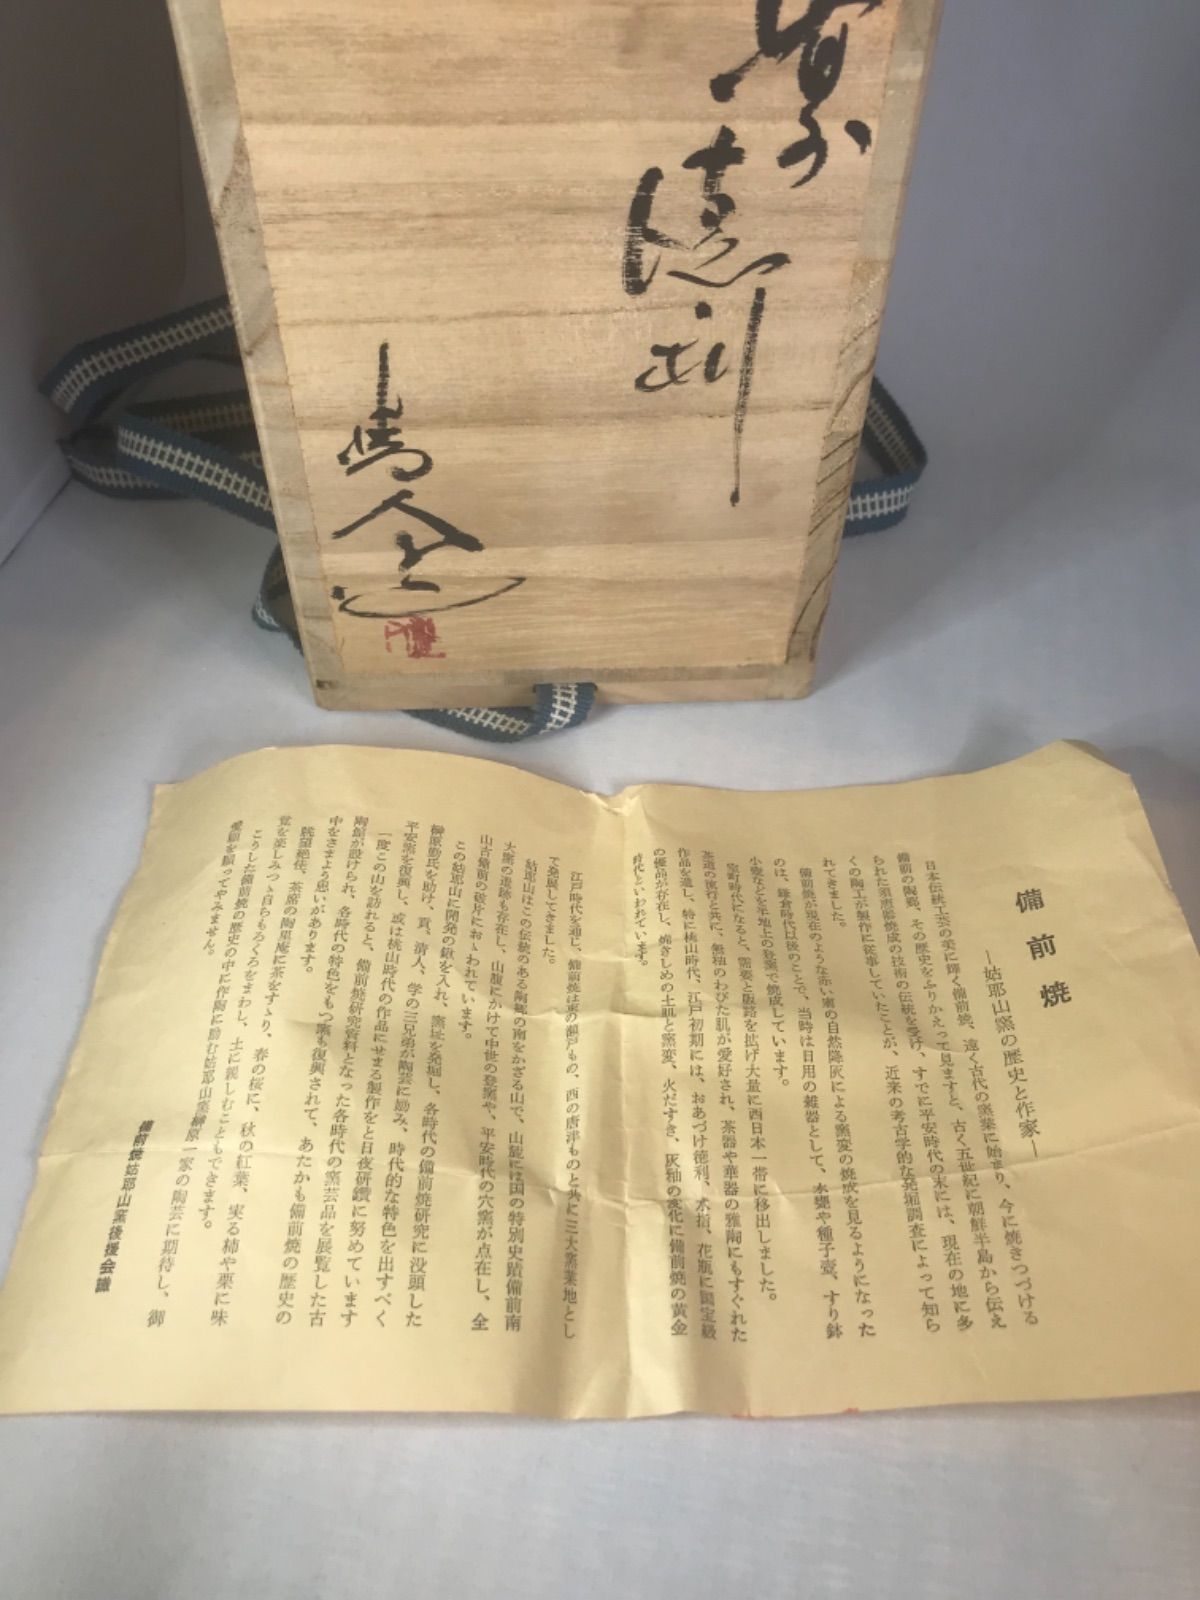 備前
徳利
備前焼
―姑耶山窯の歴史と作家―
日本伝統工芸の美に輝く備前焼、遠く古代の窯業に始まり、今に焼きつづける
備前の陶郷、その歴史をふりかえって見ますと、古く五世紀に朝鮮半島から伝え
られた須恵器焼成の技術の伝統を受け、すでに平安時代の末には、現在の地に多
くの陶工が製作に従事していたことが、近来の考古学的な発掘調査によって知ら
れてきました。
備前焼が現在のような赤い肌の自然降灰による窯変の焼成を見るようになった
のは、鎌倉時代以後のことで、当時は日用の雑器として、水甕や種子壺、すり鉢
小壺などを半地上の登窯で焼成しています。
室町時代になると、需要と販路を拡げ大量に西日本一帯に移出しました。
茶道の流行と共に、無釉のわびた肌が愛好され、茶器や華器の雅陶にもすぐれた
作品を遺し、特に桃山時代、江戸初期には、おあづけ徳利、水指、花瓶に国宝級
の優品が存在し、焼きしめの土肌と窯変、火だすき、灰釉の変化に備前焼の黄金
時代といわれています。
江戸時代を通じ、備前焼は東の瀬戸もの、西の唐津ものと共に三大窯業地とし
で発展してきました。
姑耶山はこの伝統のある陶郷の南をかざる山で、山麓には国の特別史蹟備前南
大窯の遺跡も存在し、山腹にかけて中世の登窯や、平安時代の穴窯が点在し、全
山古備前の破片におゝわれています。
この姑耶山に開発の鍬を入れ、窯址を発掘し、各時代の備前焼研究に没頭した
榊原勤氏を助け、貢、清人、学の三兄弟が陶芸に励み、時代的な特色を出すべく
平安窯を復興し、或は桃山時代の作品にせまる製作をと日夜研鑽に努めています
一度この山を訪れると、備前焼研究資料となった各時代の窯芸品を展覧した古
陶館が設けられ、各時代の特色をもつ窯も復興されて、あたかも備前焼の歴史の
中をさまよう思いがあります。
眺望絶佳、茶席の陶里庵に茶をすゝり、春の桜に、秋の紅葉、実る柿や栗に味
覚を楽しみつゝ自らもろくろをまわし、土に親しむこともできます。
こうした備前焼の歴史の中に作陶に励む姑耶山窯榊原一家の陶芸に期待し、御
愛顧を願ってやみません。
備前焼姑耶山窯後援会識